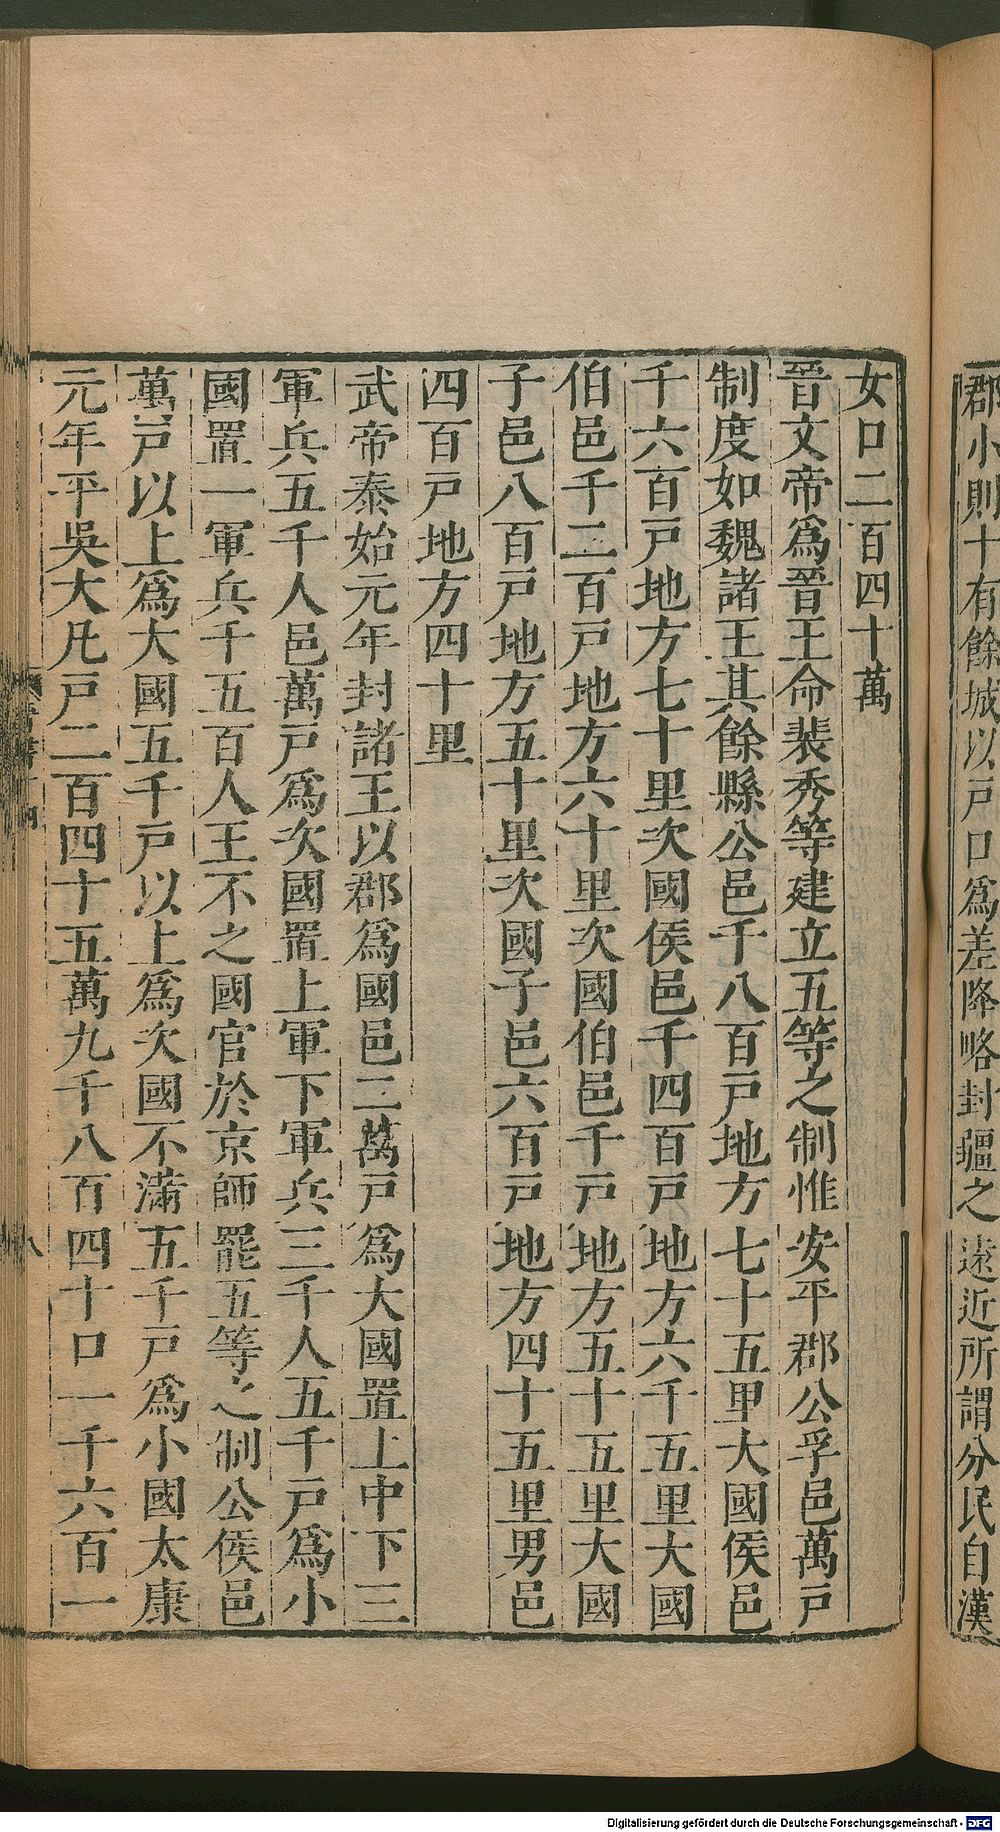 郡小則十有餘城以戸口爲差降略封疆之遠近所謂分民自漢
女口二百四十萬
晉文帝爲晉王命裴秀等建立五等之制惟安平郡公孚邑萬戸
制度如魏諸王其餘縣公邑千八百戸地方七十五里大國侯邑
千六百戸地方七十里次國侯邑千四百戸地方六千五里大國
伯邑千二百戸地方六十里次國伯邑千戸地方五十五里大國
子邑八百戸地方五十里次國子邑六百戸地方四十五里男邑
四百戸地方四十里
武帝泰始元年封諸王以郡爲國邑二萬戸爲大國置上中下三
軍兵五千人邑萬戸爲次國置上軍下軍兵三千人五千戸爲小
國置一軍兵千五百人王不之國官於京師罷五等之制公侯邑
萬戸以上爲大國五千戸以上爲次國不滿五千戸爲小國太康
元年平吳大凡戸二百四十五萬九千八百四十口一千六百一
八
Digitalisierung gefördert durch die Deutsche Forschungsgemeinschaft - DFG